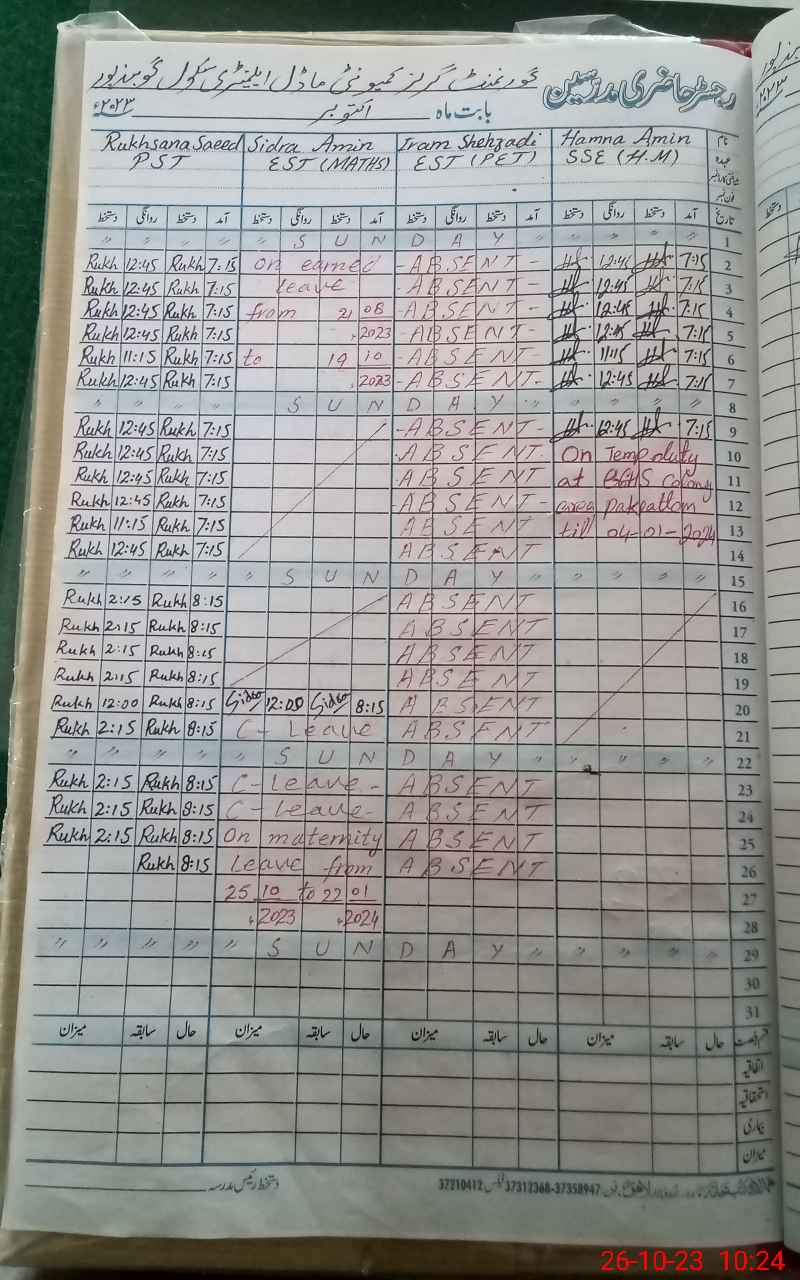 رجسٹر حاضری مدرسین گورنمنٹ گرلز کمیونٹی ماڈل ایلیمنٹری سکول گوبندپور
بابت ماہ اکتوبر ۲۰۲۳ء
نام Hamna Amin Iram Shehzadi Sidra Amin Rukhsana Saeed
عہدہ SSE (H.M) EST (PET) EST (MATHS) PST
تاریخ آمد دستخط روانگی دستخط آمد دستخط روانگی دستخط آمد دستخط روانگی دستخط آمد دستخط روانگی دستخط
" " " " S U N D A Y " " " " 1
Rukh 12:45 Rukh 7:15 on earned - A B S E N T - 12:45 7:15 2
Rukh 12:45 Rukh 7:15 leave - A B S E N T - 12:45 7:15 3
Rukh 12:45 Rukh 7:15 from 21 08 - A B S E N T - 12:45 7:15 4
Rukh 12:45 Rukh 7:15 2023 - A B S E N T - 12:45 7:15 5
Rukh 11:15 Rukh 7:15 to 19 10 - A B S E N T - 11:15 7:15 6
Rukh 12:45 Rukh 7:15 2023 - A B S E N T - 12:45 7:15 7
" " " " S U N D A Y " " " " " 8
Rukh 12:45 Rukh 7:15 - A B S E N T - 12:45 7:15 9
Rukh 12:45 Rukh 7:15 A B S E N T On Temp duty 10
Rukh 12:45 Rukh 7:15 A B S E N T at colony 11
Rukh 12:45 Rukh 7:15 A B S E N T - area pakpattan 12
Rukh 11:15 Rukh 7:15 A B S E N T till 04-01-2024 13
Rukh 12:45 Rukh 7:15 A B S E N T 14
" " " " S U N D A Y " " " " " 15
Rukh 2:15 Rukh 8:15 A B S E N T 16
Rukh 2:15 Rukh 8:15 A B S E N T 17
Rukh 2:15 Rukh 8:15 A B S E N T 18
Rukh 2:15 Rukh 8:15 A B S E N T 19
Rukh 12:00 Rukh 8:15 Sidra 12:00 Sidra 8:15 A B S E N T 20
Rukh 2:15 Rukh 8:15 C - Leave A B S E N T 21
" " " " S U N D A Y " " " " " 22
Rukh 2:15 Rukh 8:15 C - Leave - A B S E N T 23
Rukh 2:15 Rukh 8:15 C - Leave - A B S E N T 24
Rukh 2:15 Rukh 8:15 On maternity A B S E N T 25
Rukh 8:15 Leave from A B S E N T 26
25 10 to 22 01 27
2023 2024 28
" " " " S U N D A Y " " " " " 29
30
31
حال سابقہ میزان حال سابقہ میزان حال سابقہ میزان حال سابقہ میزان
اتفاقیہ
استحقاقیہ
بیماری
میزان
دستخط رئیس مدرسہ
37312368-37358947 فیکس 37210412
26-10-23 10:24